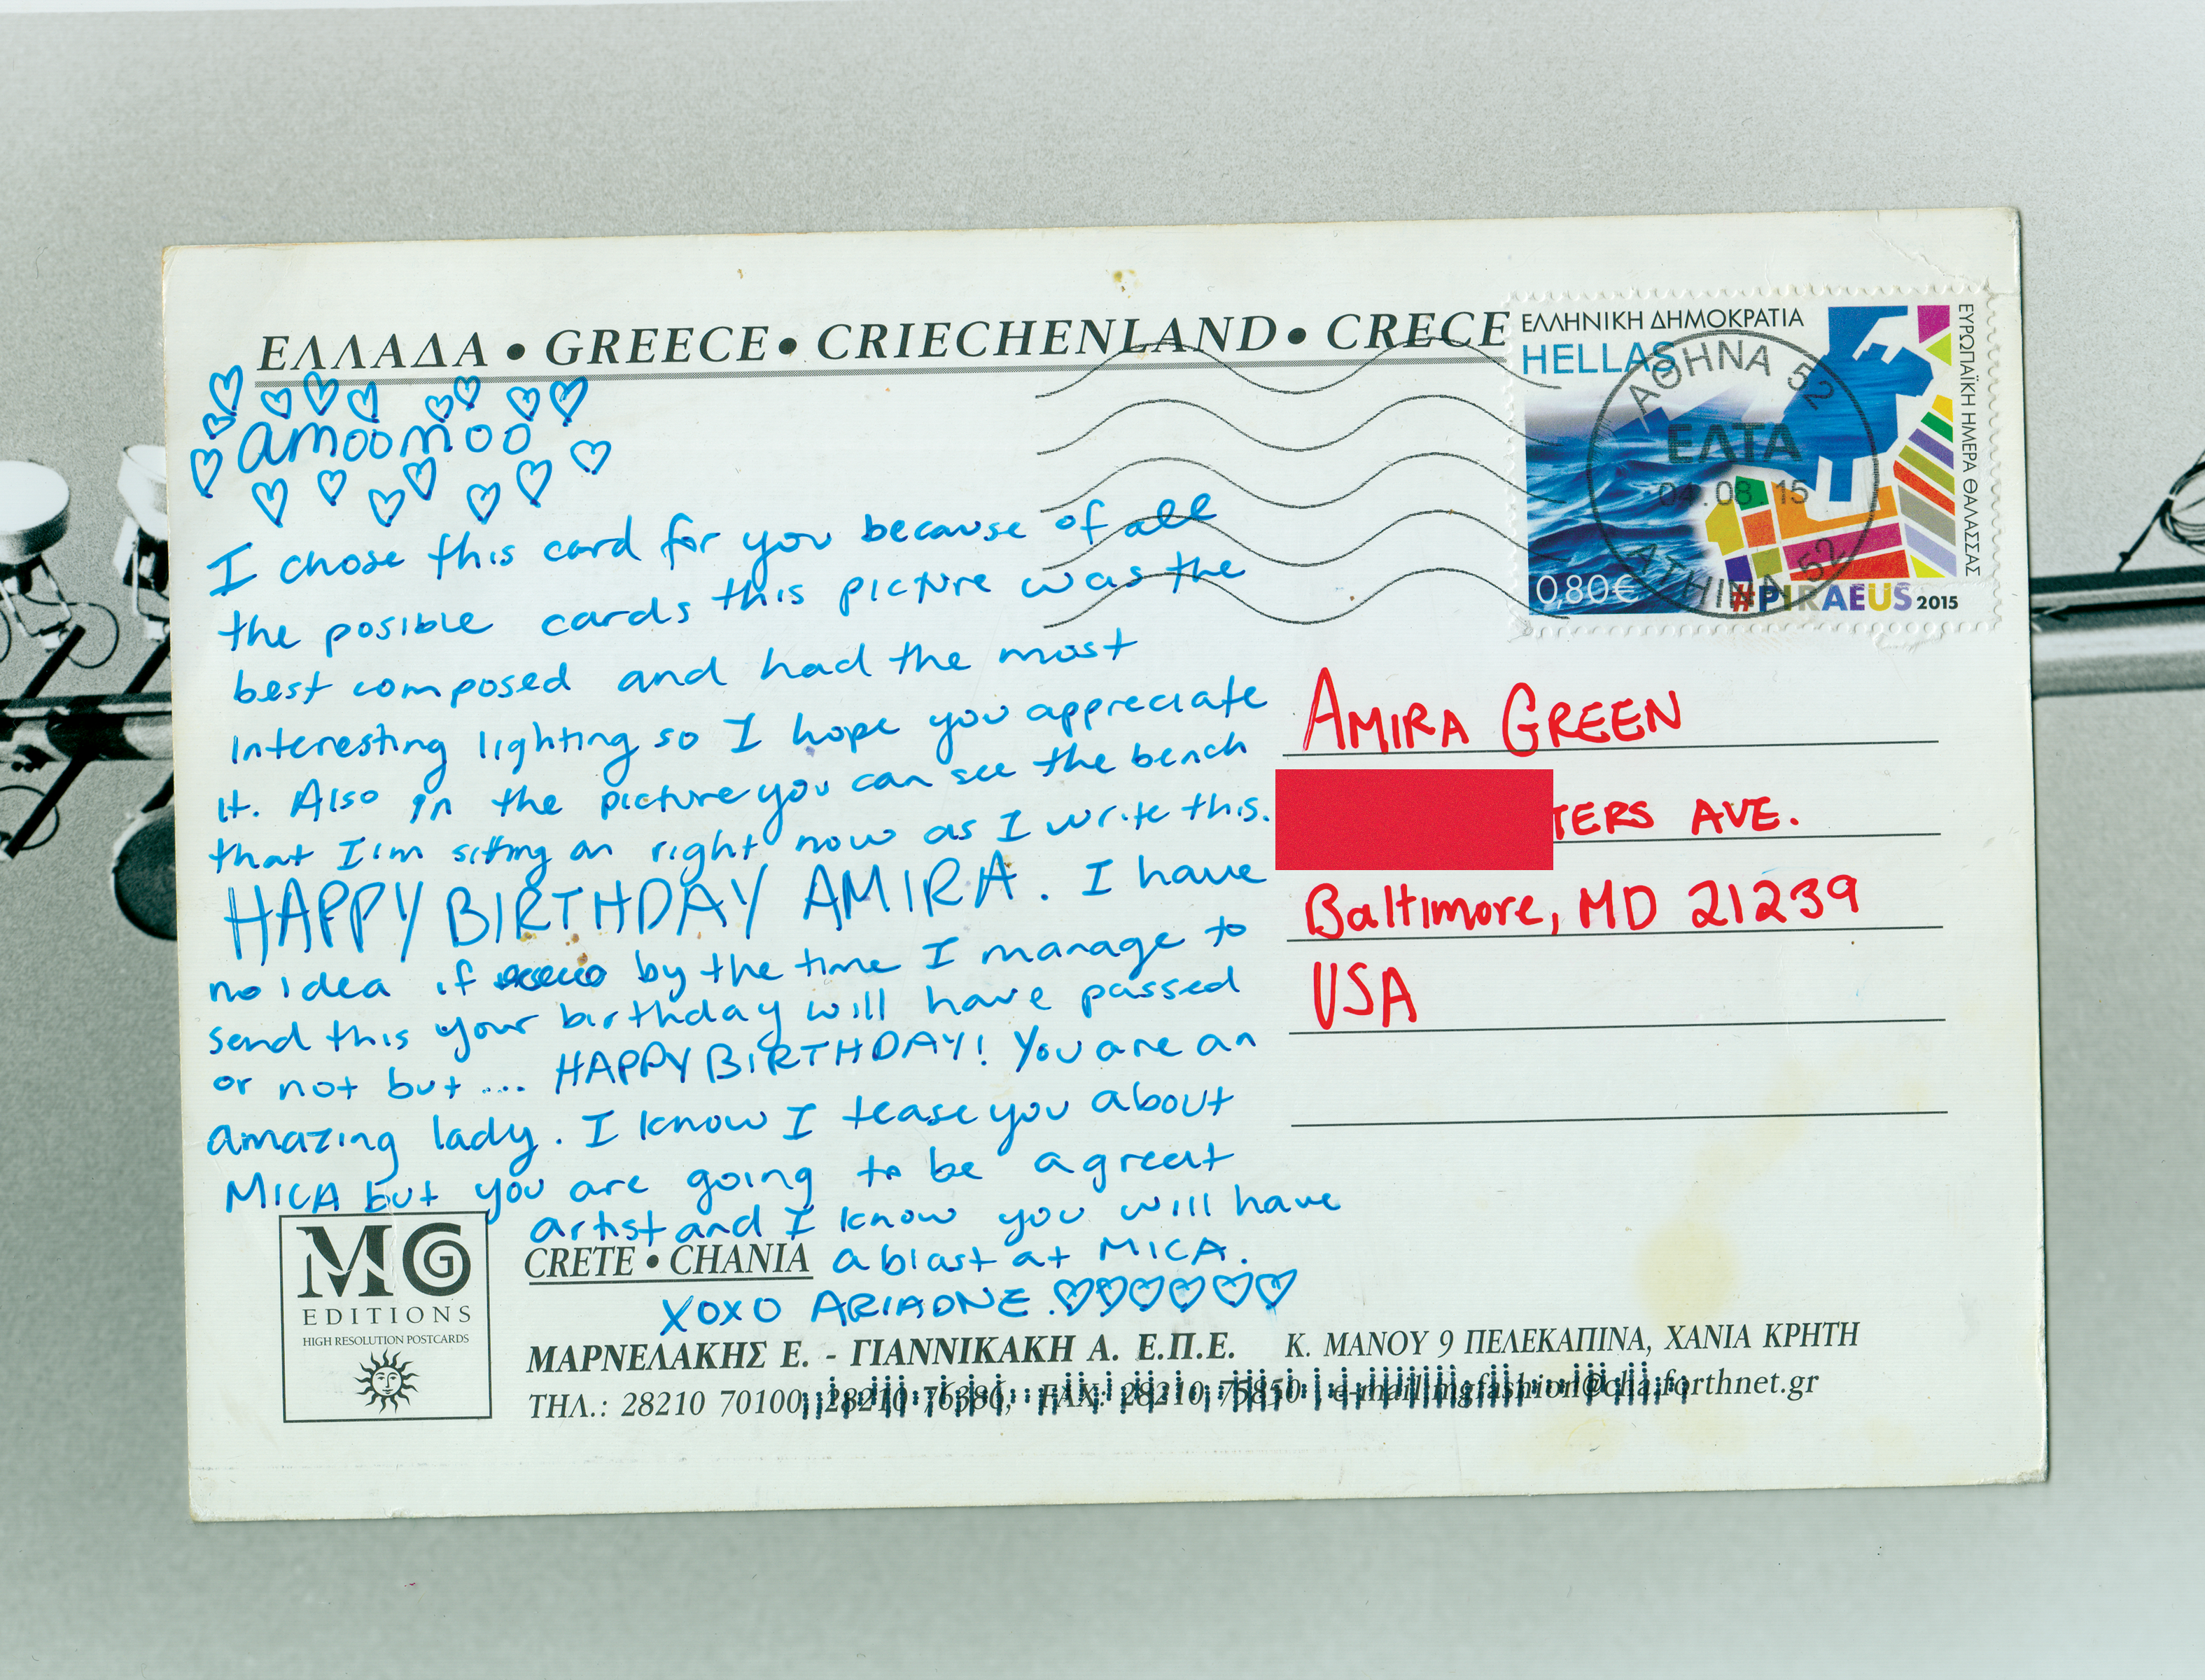 ΕΛΛΑΔΑ • GREECE • CRIECHENLAND • CRECE
amoomoo
I chose this card for you because of all
the posible cards this picture was the
best composed and had the most
interesting lighting so I hope you appreciate
it. Also in the picture you can see the bench
that I'm sitting on right now as I write this.
HAPPY BIRTHDAY AMIRA. I have
no idea if by the time I manage to
send this your birthday will have passed
or not but ... HAPPY BIRTHDAY! You are an
amazing lady. I know I tease you about
MICA but you are going to be a great
artist and I know you will have
a blast at MICA.
XOXO ARIADNE.
ΕΛΛΗΝΙΚΗ ΔΗΜΟΚΡΑΤΙΑ
HELLAS
ΕΥΡΩΠΑΪΚΗ ΗΜΕΡΑ ΘΑΛΑΣΣΑΣ
0,80€
#PIRAEUS 2015
ΑΘΗΝΑ 52
ΕΛΤΑ
08 15
ATHINA 52
AMIRA GREEN
TERS AVE.
Baltimore, MD 21239
USA
MG
EDITIONS
HIGH RESOLUTION POSTCARDS
CRETE • CHANIA
ΜΑΡΝΕΛΑΚΗΣ Ε. - ΓΙΑΝΝΙΚΑΚΗ Α. Ε.Π.Ε. Κ. ΜΑΝΟΥ 9 ΠΕΛΕΚΑΠΙΝΑ, ΧΑΝΙΑ ΚΡΗΤΗ
ΤΗΛ.: 28210 70100, 28210 76386, FAX: 28210 75850, e-mail:mgfashion@cha.forthnet.gr